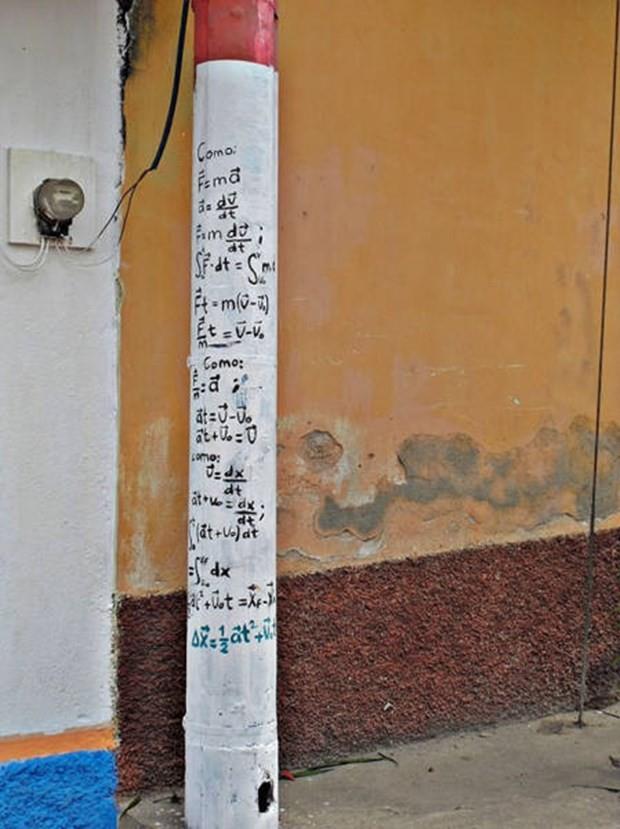 Como:
F⃗=ma⃗
a⃗=dv⃗/dt
F⃗=m dv⃗/dt;
∫F⃗·dt=∫m
F⃗t=m(v⃗-v⃗₀)
F⃗/m t=v⃗-v⃗₀
Como:
F⃗/m=a⃗;
a⃗t=v⃗-v⃗₀
a⃗t+v⃗₀=v⃗
como:
v⃗=dx⃗/dt
a⃗t+v₀=dx⃗/dt;
∫(a⃗t+v₀)dt
=∫dx
t²+v⃗₀t=x⃗F-x⃗
Δx⃗=½a⃗t²+v⃗₀t